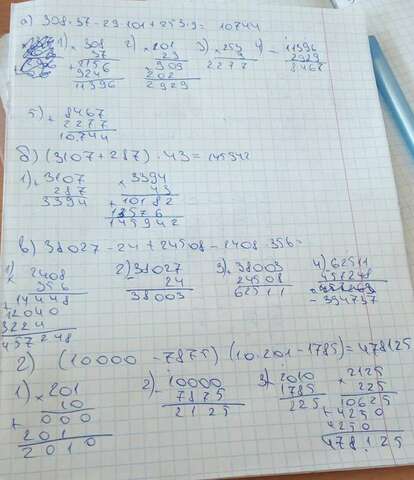 а) 308·37-29·101+253·9= 10744
1) ×308
37
+2156
9246
11396
2) ×101
29
909
202
2929
3) ×253
9
2277
4) -11396
2929
8467
5) +8467
2277
10.744
б) (3107+287)·43=145942
1) 3107
287
3394
×3394
43
+10182
13576
145942
в) 38027-24+24508-2408·356=
1) ×2408
356
+14448
12040
7224
857248
2) 38027
- 24
38003
3) 38003
24508
62511
4) 62511
- 394737
г) (10000-7875)(10·201-1785)=478125
1) ×201
10
+000
201
2010
2) -10000
7875
2125
3) -2010
1785
225
×2125
225
10625
+4250
4250
478125